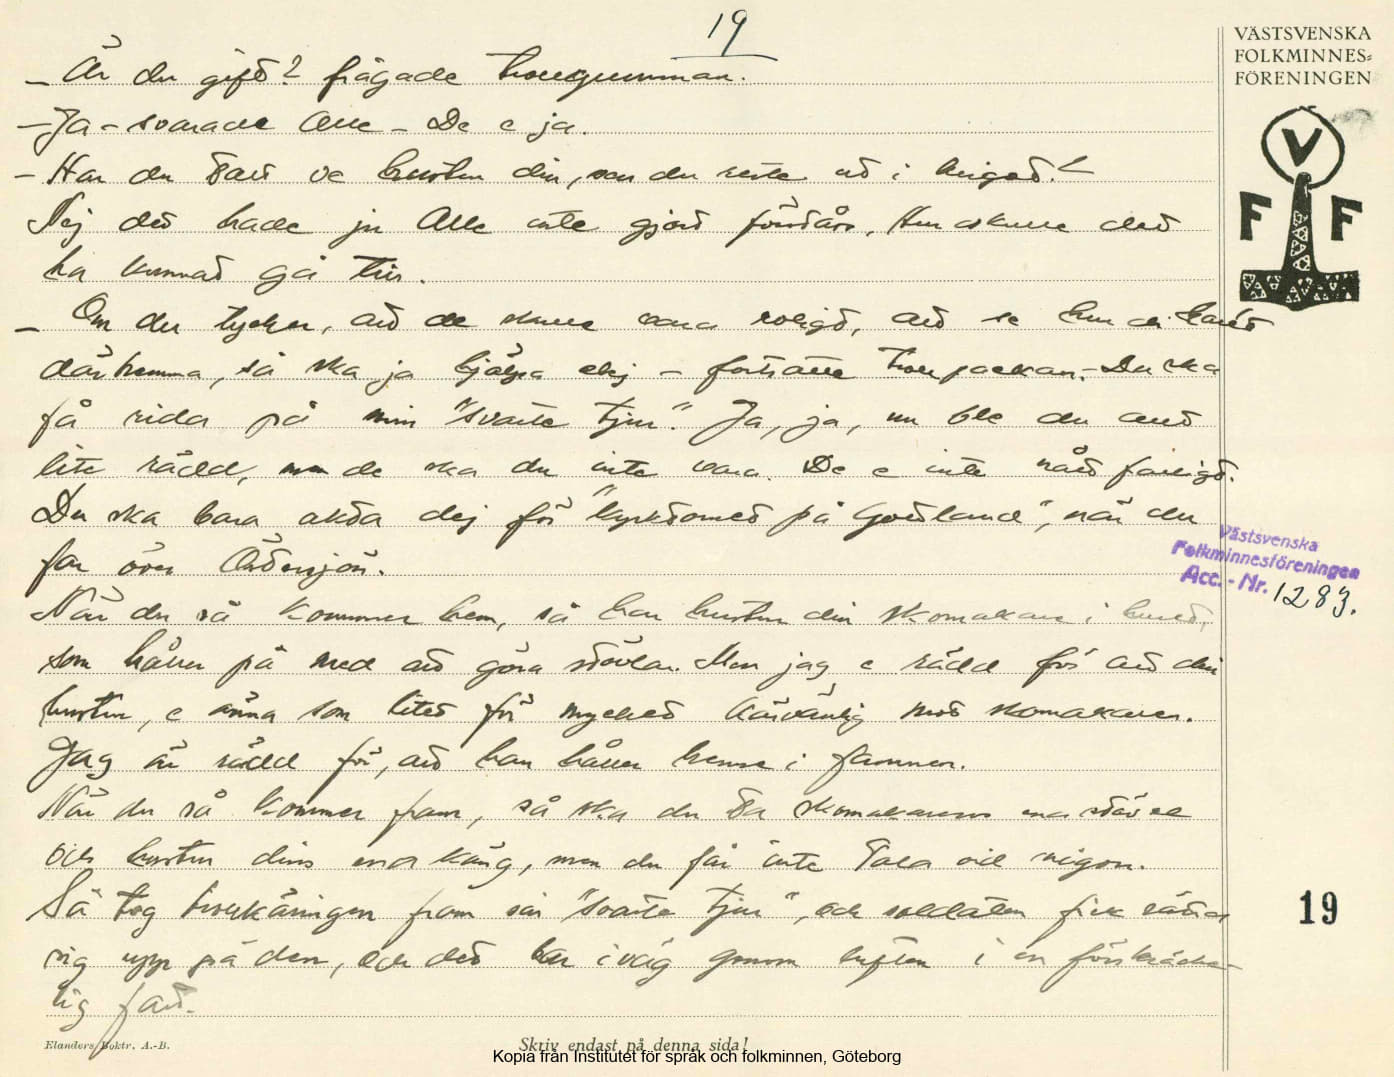 19
VÄSTSVENSKA
FOLKMINNES=
FÖRENINGEN
V
F F
– Är du gift? frågade trollgumman.
– Ja – svarade Olle – De e ja.
– Har du talt ve hustru din, sen du reste ut i kriget?
Nej det hade ju Olle inte gjort förstårs. Hur skulle det
ha kunnat gå till.
– Om du tycker, att de skulle vara roligt, att se hur di har'ed
därhemma, så ska ja hjälpa dej – fortsatte trollpackan. – Du ska
få rida på min "svarte tjur". Ja, ja, nu ble du allt
lite rädd, men de ska du inte vara. De e inte nåt farligt.
Du ska bara akta dej för "kyrktornet på Gotland", när du
far över Östersjön.
När du så kommer hem, så har hustru din skomakare i huset,
som håller på med att göra stövlar. Men jag e rädd för att din
hustru, e änna som litet för mycket kärvänlig mot skomakaren.
Jag är rädd för, att han håller henne i famnen.
När du så kommer fram, så ska du ta skomakarens ena stövel
och hustru dins ena käng, men du får inte tala vid någon.
Så tog trollkäringen fram sin "svarte tjur", och soldaten fick sätta
sig upp på den, och det bar iväg genom luften i en förskräcke-
lig fart.
Västsvenska
Folkminnesföreningen
Acc. - Nr. 1283.
19
Elanders Boktr. A.-B.
Skriv endast på denna sida!
Kopia från Institutet för språk och folkminnen, Göteborg